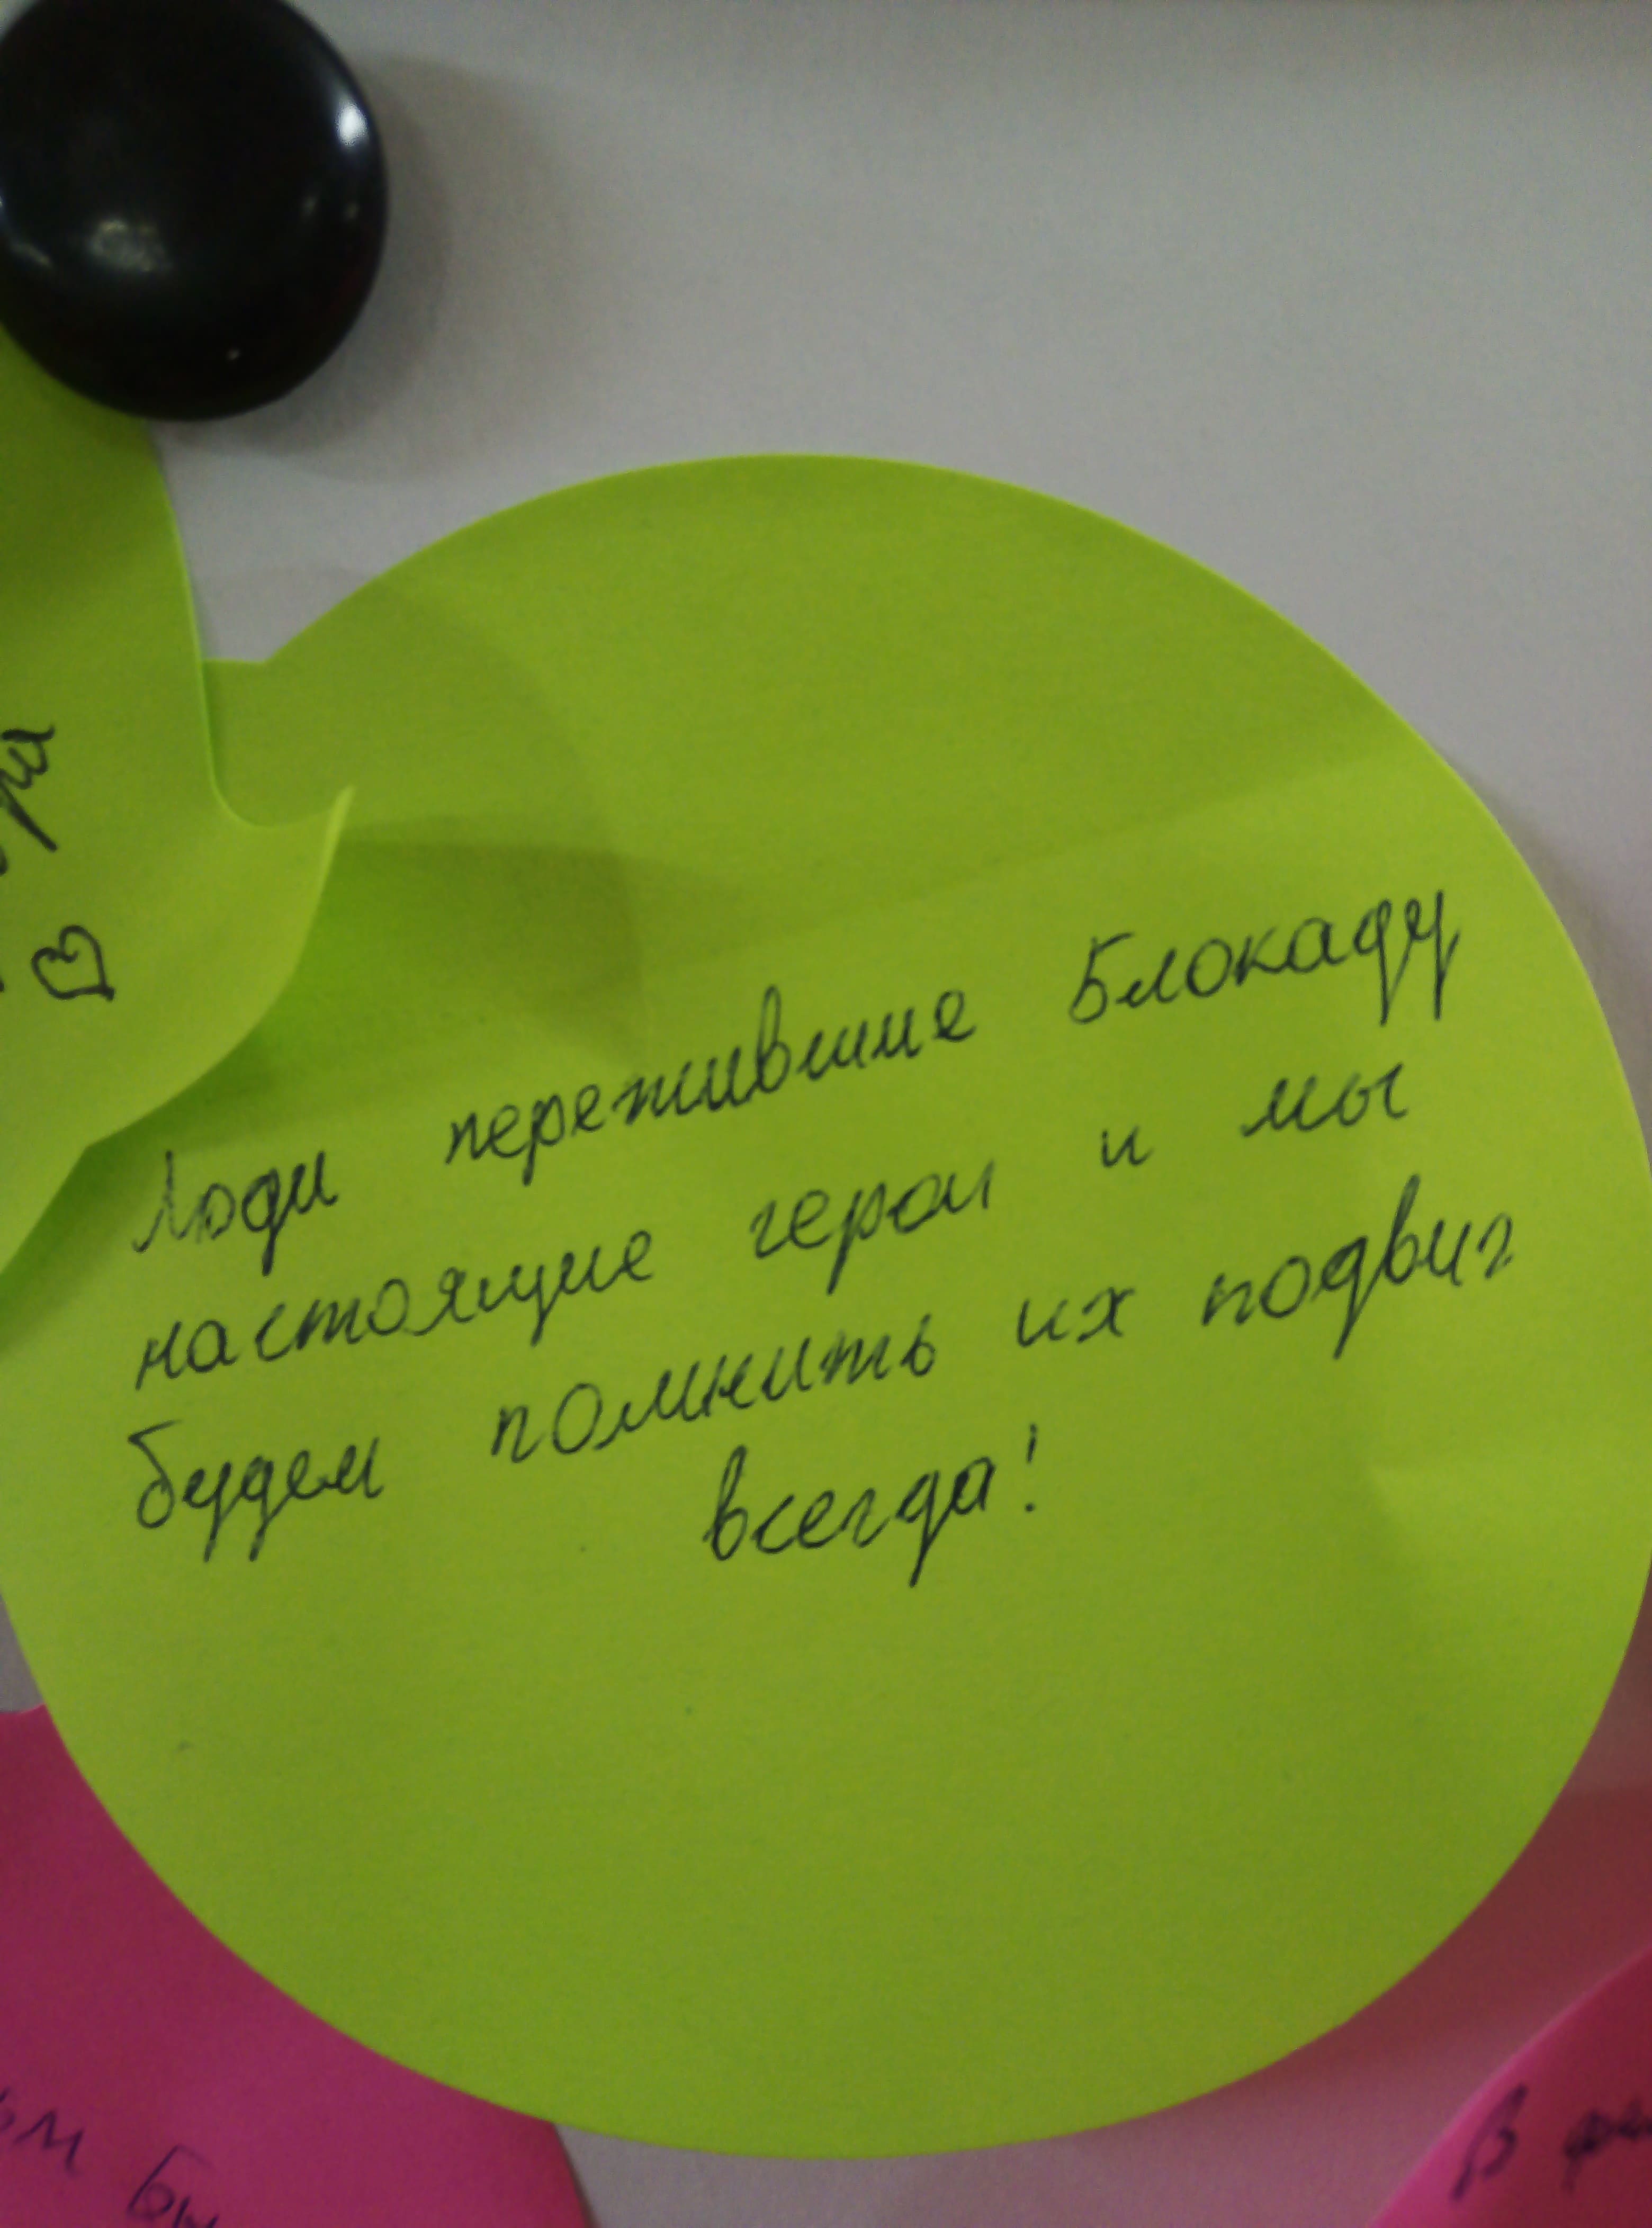 Люди пережившие Блокаду
настоящие герои и мы
будем помнить их подвиг
всегда!